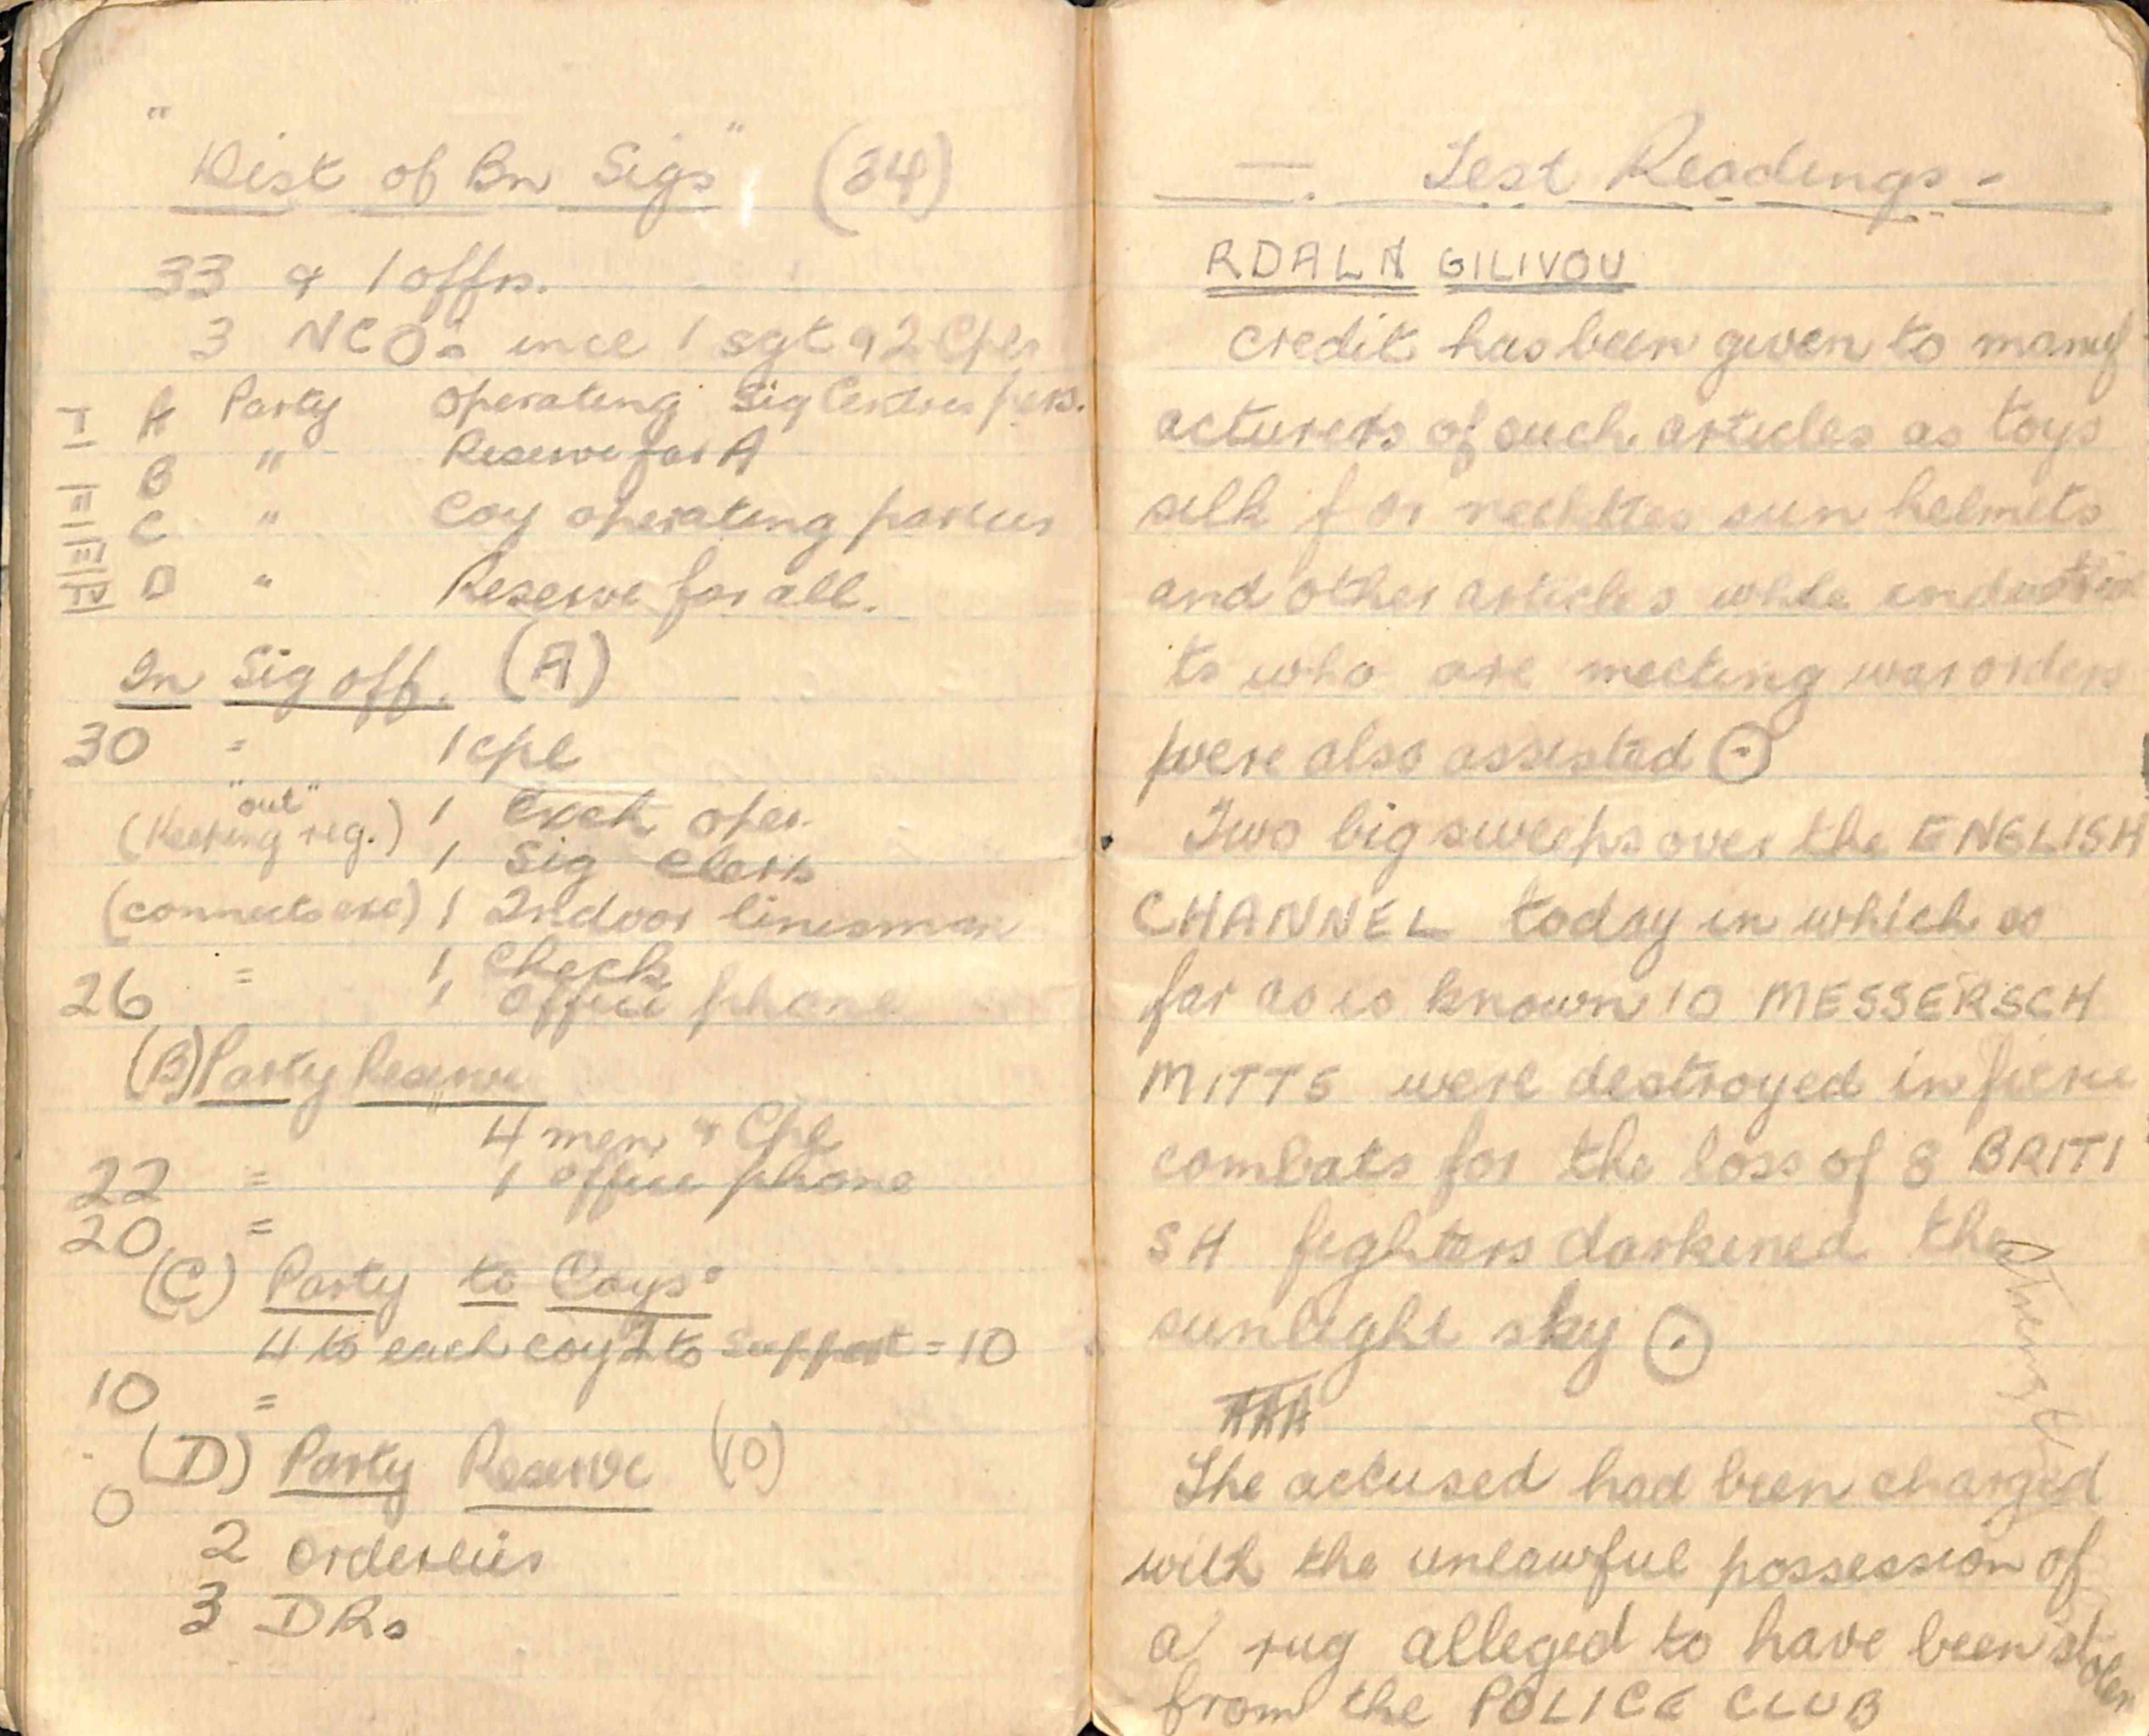 "Dist of Bn Sigs" (34)
33 & 1 offrs.
3 NCO's incl 1 sgt & 2 Cpls
I A Party operating Sig Centres pers.
B " Reserve for A
II C " Coy operating parties
III IV D " Reserve for all.
In Sig off. (A)
30 = 1 cpl
"out"
(Keeping reg.) 1 Exch oper.
1 Sig Clerk
(connects exc) 1 Indoor linesman
1 Check
26 = 1 office phone
(B) Party Reserve
4 men & Cpl
22 = 1 office phone
20 =
(C) Party to Coys
4 to each coy 2 to support = 10
10 =
(D) Party Reserve (10)
0
2 orderlies
3 DRs
— Test Readings -
RDALN GILIVOU
credit has been given to manuf
acturers of such articles as toys
silk for neckties sun helmets
and other articles while
ts who are meeting war orders
were also assisted ⊙
Two big sweeps over the ENGLISH
CHANNEL today in which as
far as is known 10 MESSERSCH
MITTS were destroyed in fierce
combats for the loss of 8 BRITI
SH fighters darkened the
sunlight sky ⊙
AAA
The accused had been charged
with the unlawful possession of
a rug alleged to have been stolen
from the POLICE CLUB